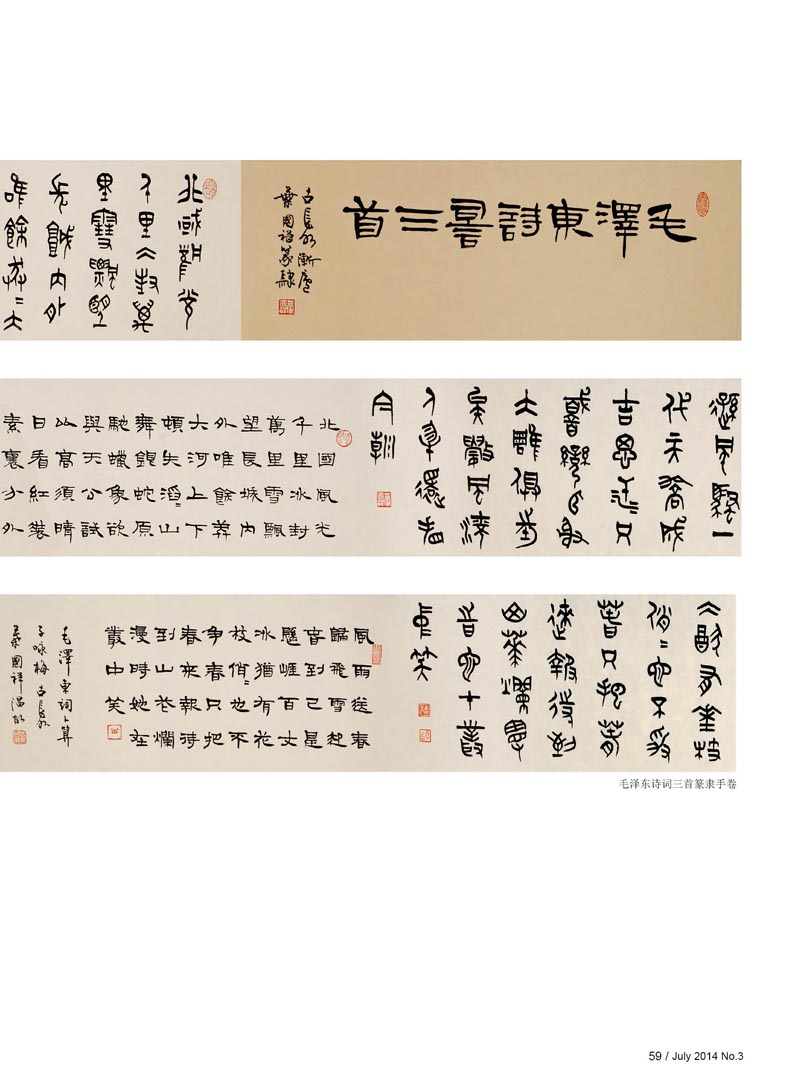 毛澤東詩詞三首
古長安
葉國祥篆隸
北國風光
千里冰封萬
里雪飄望
長城内外
唯餘莽〻大
遜風騷一
代天驕成
吉思汗只
識彎弓射
大雕俱往
矣數風流
人物還看
今朝
北國風光
千里冰封
萬里雪飄
望長城内
外唯餘莽
大河上下
頓失滔〻山
舞銀蛇原
馳蠟象欲
與天公試
比高須晴
日看紅裝
素裹分外
冰猶有花枝
俏〻也不爭
春只把春
來報待到
山花爛漫
時她在叢
中笑
風雨送春
歸飛雪迎
春到已是
懸崖百丈
冰猶有花
枝俏〻也不
爭春只把
春來報待
到山花爛
漫時她在
叢中笑
毛澤東詞卜算
子咏梅 古長安
葉國祥
毛泽东诗词三首篆隶手卷
59 / July 2014 No.3